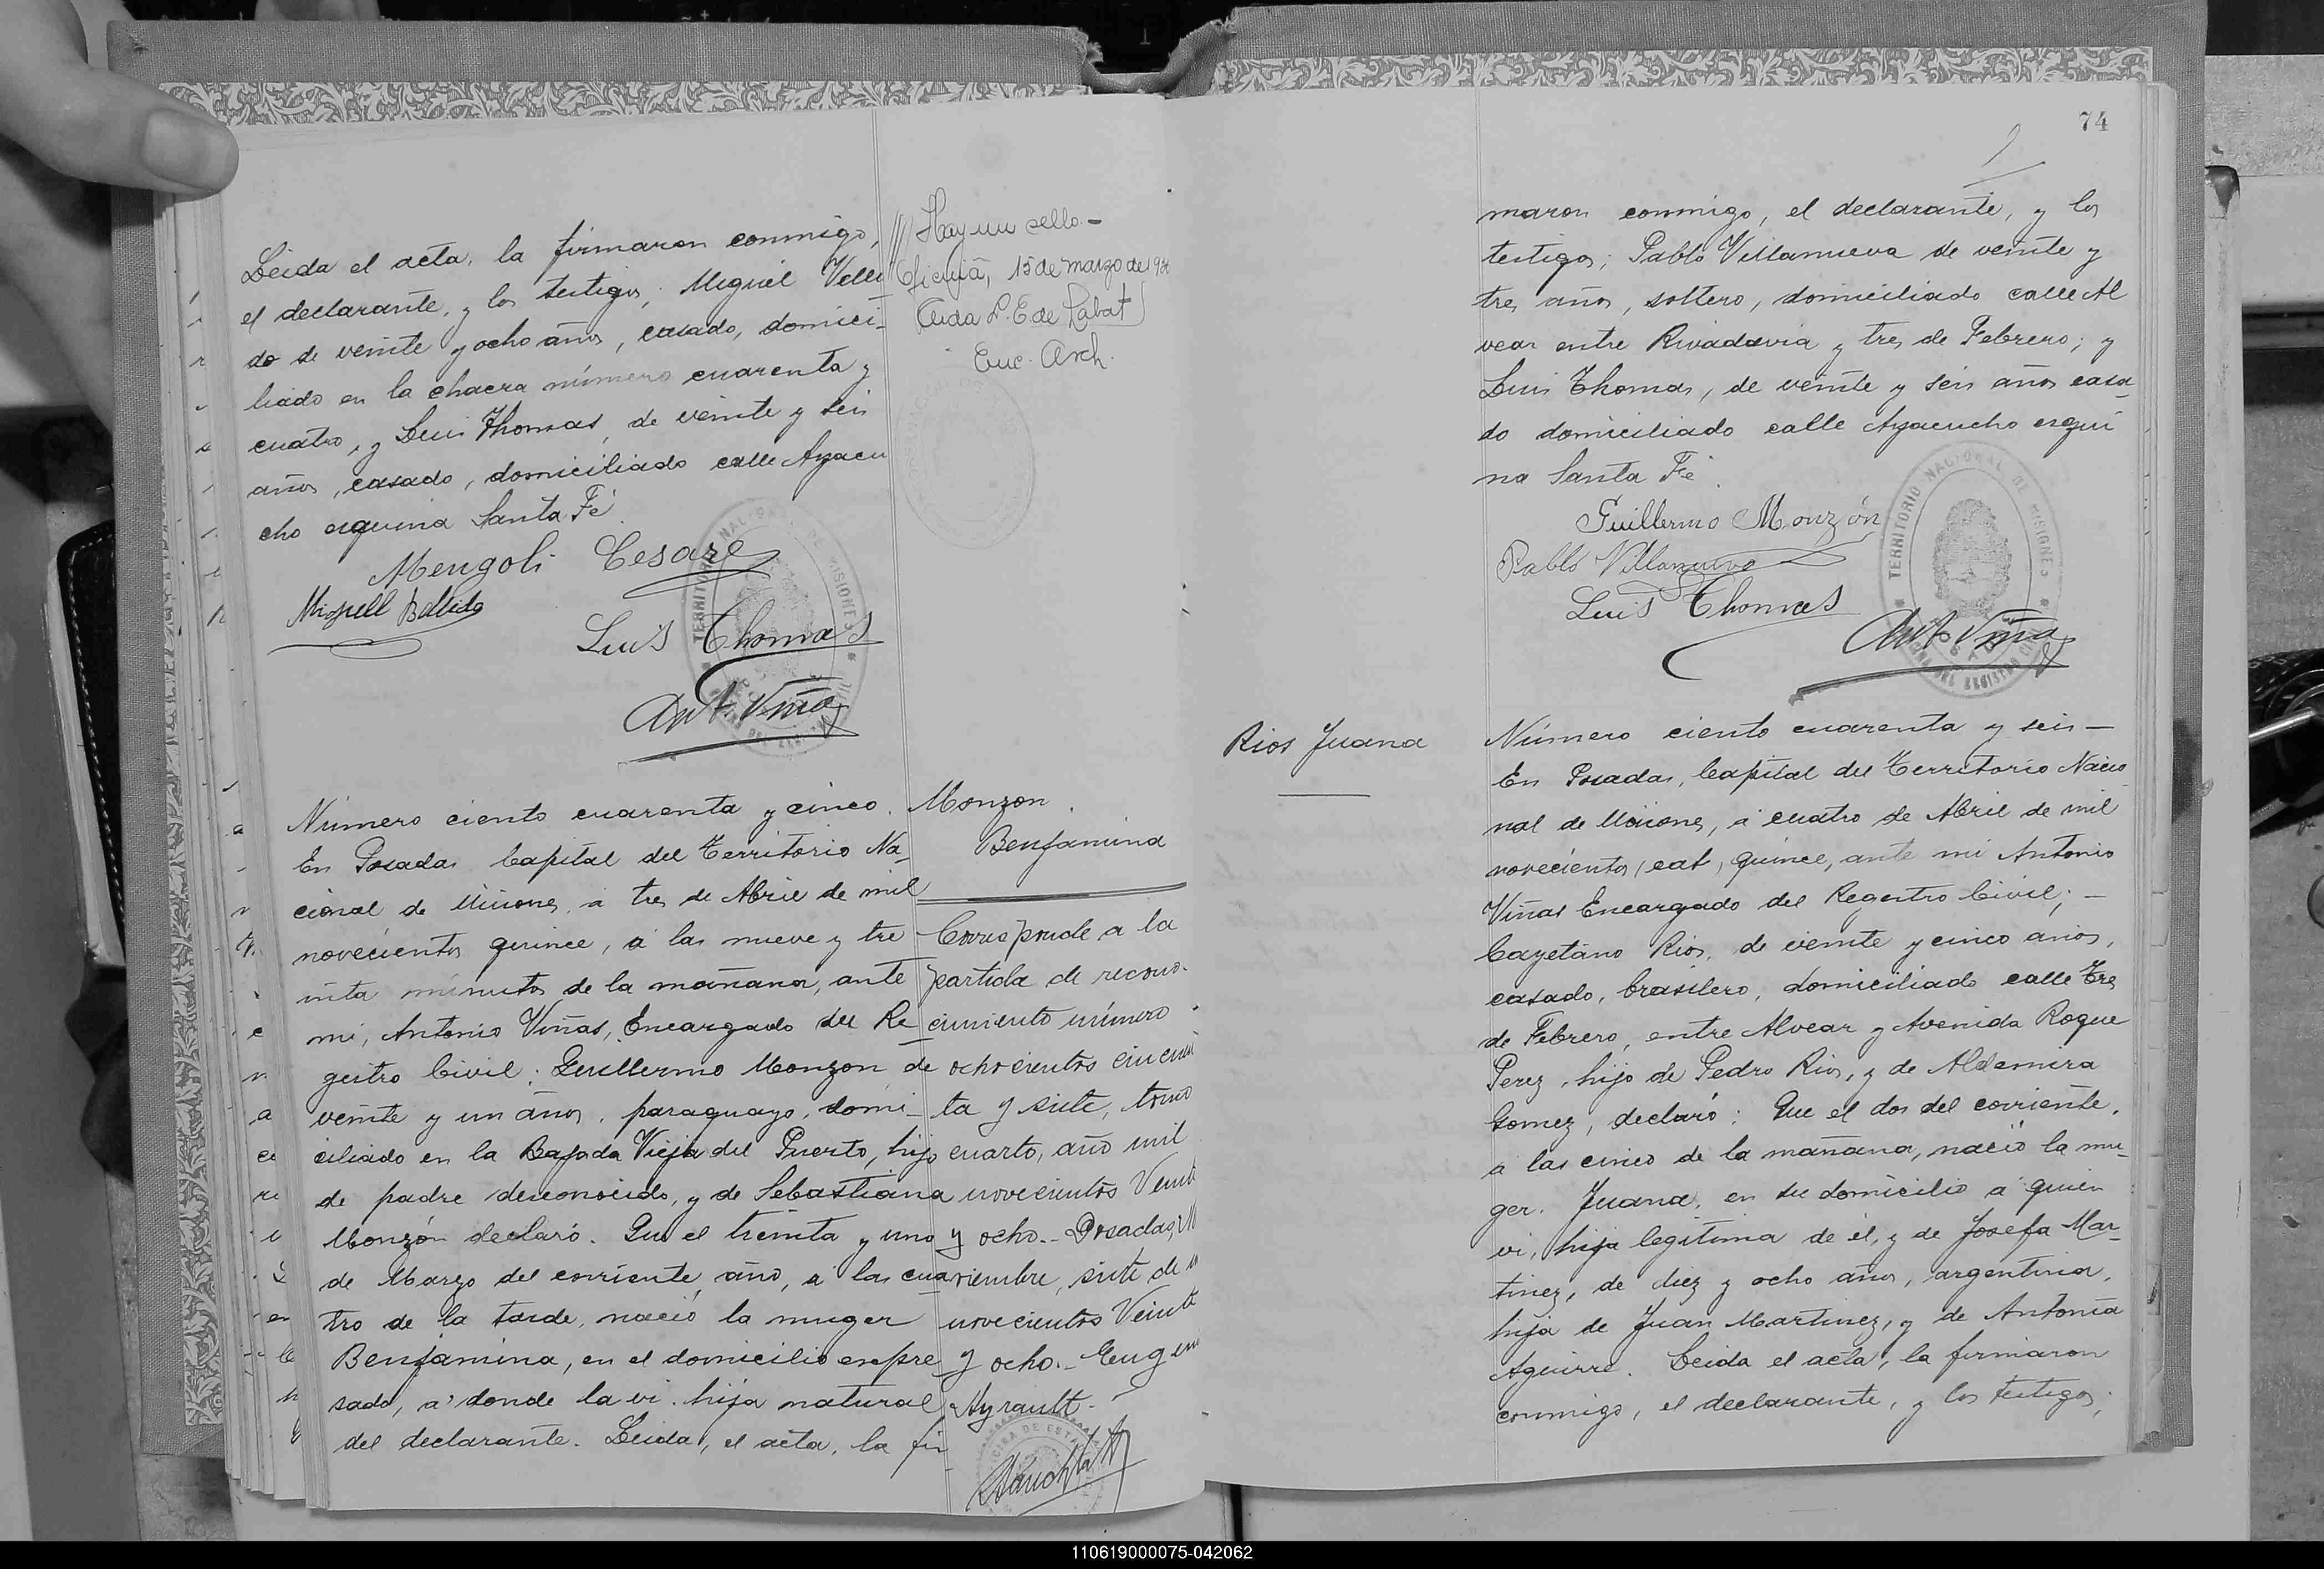 Leida el acta, la firmaron conmigo,
el declarante, y los testigos; Miguel Velli
do de veinte y ocho años, casado, domici-
liado en la chacra número cuarenta y
cuatro, y Luis Thomas, de veinte y seis
años, casado, domiciliado calle Ayacu
cho esquina Santa Fé
Mengoli Cesare
Luis Thomas
Ant. Viñas
Hay un sello.-
15 de marzo de
Enc. Arch.
Número ciento cuarenta y cinco.
En Posadas Capital del Territorio Na-
cional de Misiones, a tres de Abril de mil
novecientos quince, á las nueve y tre
inta minutos de la mañana, ante
mi, Antonio Viñas, Encargado del Re
gistro Civil; Guillermo Monzon, de
veinte y un años, paraguayo, domi-
ciliado en la Bajada Vieja del Puerto, hijo
de padre desconocido, y de Sebastiana
Monzón declaró. Que el treinta y uno
de Marzo del corriente año, a las cua-
tro de la tarde, nació la muger
Benjamina, en el domicilio espre
sado, a donde la vi. hija natural
del declarante. Leida, el acta, la fir
Monzon
Benjamina
Corresponde a la
partida de recono-
cimiento número
ochocientos cincuen
ta y siete, tomo
cuarto, año mil
novecientos Veinti
y ocho.- Posadas, No
viembre, siete de
novecientos Veinte
y ocho.-
Ayrault.-
74
maron conmigo, el declarante, y los
testigos; Pablo Villanueva de veinte y
tres años, soltero, domiciliado calle Al
vear entre Rivadavia y tres de Febrero; y
Luis Thomas, de veinte y seis años casa-
do domiciliado calle Ayacucho esqui
na Santa Fé.
Guillermo Monzón
Pablo Villanueva
Luis Thomas
Ant. Viñas
TERRITORIO NACIONAL DE MISIONES
Rios Juana
Número ciento cuarenta y seis —
En Posadas, Capital del Territorio Nacio
nal de Misiones, á cuatro de Abril de mil
novecientos, quince, ante mi Antonio
Viñas Encargado del Registro Civil; —
Cayetano Rios, de veinte y cinco años,
casado, brasilero, domiciliado calle Tres
de Febrero, entre Alvear y Avenida Roque
Perez, hijo de Pedro Rios, y de Aldemira
Gomez, declaró: Que el dos del corriente,
a las cinco de la mañana, nació la mu-
ger. Juana, en su domicilio a quien
vi, hija legitima de él, y de Josefa Mar-
tinez, de diez y ocho años, argentina,
hija de Juan Martinez, y de Antonia
Aguirre. Leida el acta, la firmaron
conmigo, el declarante, y los testigos;
110619000075-042062